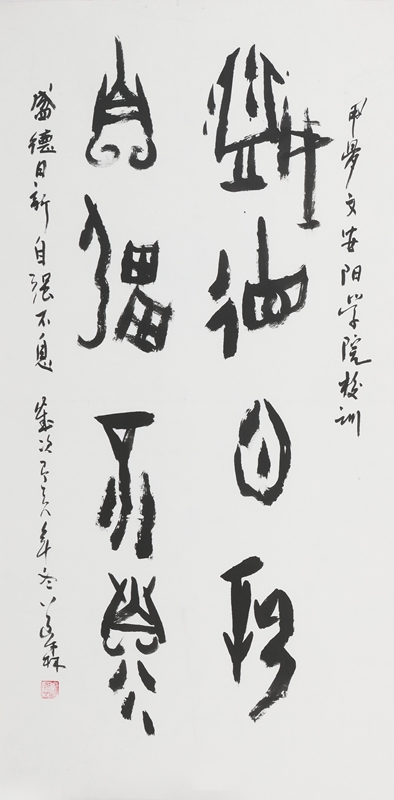 甲骨文安阳学院校训
盛德日新
自强不息
盛德日新 自强不息 歲次己亥年冬